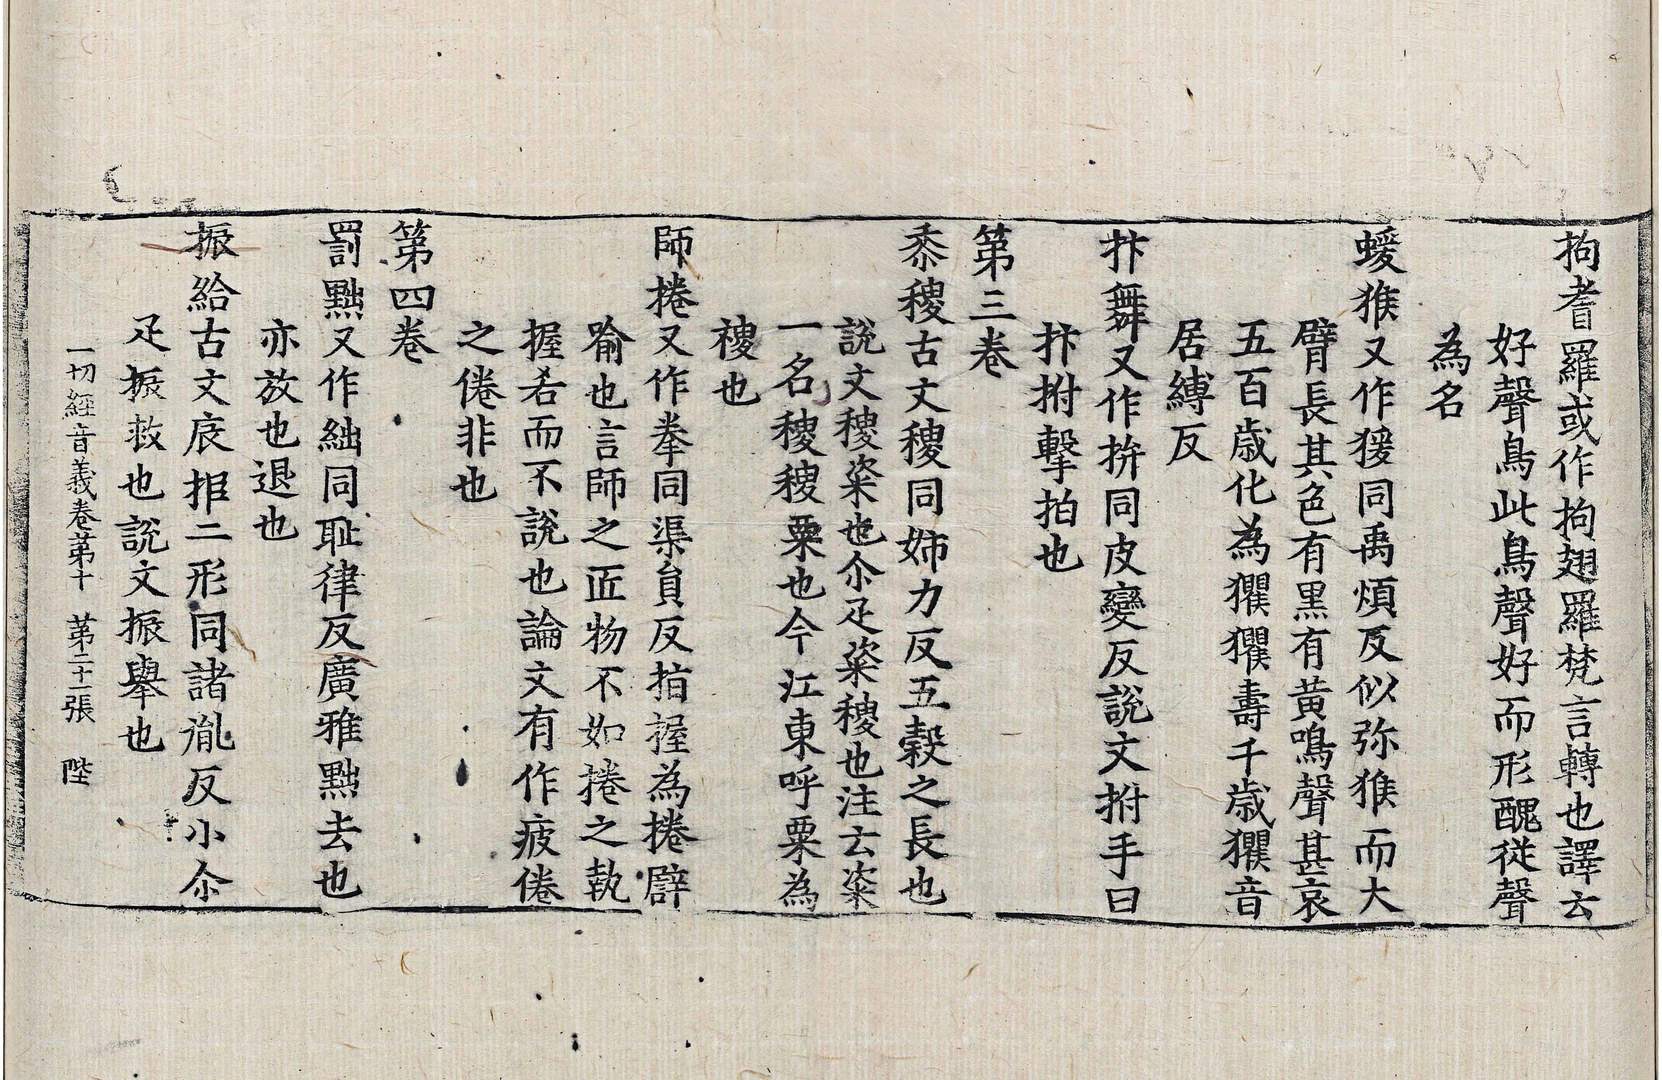 拘耆羅或作拘翅羅梵言轉也譯云
好聲鳥此鳥聲好而形醜從聲
為名
蝯猴又作猨同禹煩反似弥猴而大
臂長其色有黑有黃鳴聲甚哀
五百歲化為玃玃壽千歲玃音
居縛反
抃舞又作拚同皮變反說文拊手曰
抃拊擊拍也
第三卷
黍稷古文稷同姊力反五穀之長也
說文稷粢也尒疋粢稷也注云粢
一名稷稷粟也今江東呼粟為
稷也
師捲又作拳同渠負反拍握為捲辟
喻也言師之匠物不如捲之執
握𠰥而不說也論文有作疲倦
之倦非也
第四卷
罰黜又作絀同耻律反廣雅黜去也
亦放也退也
振給古文㡳拒二形同諸胤反小尒
疋振救也說文振舉也
一切經音義卷第十　第二十一張　陛